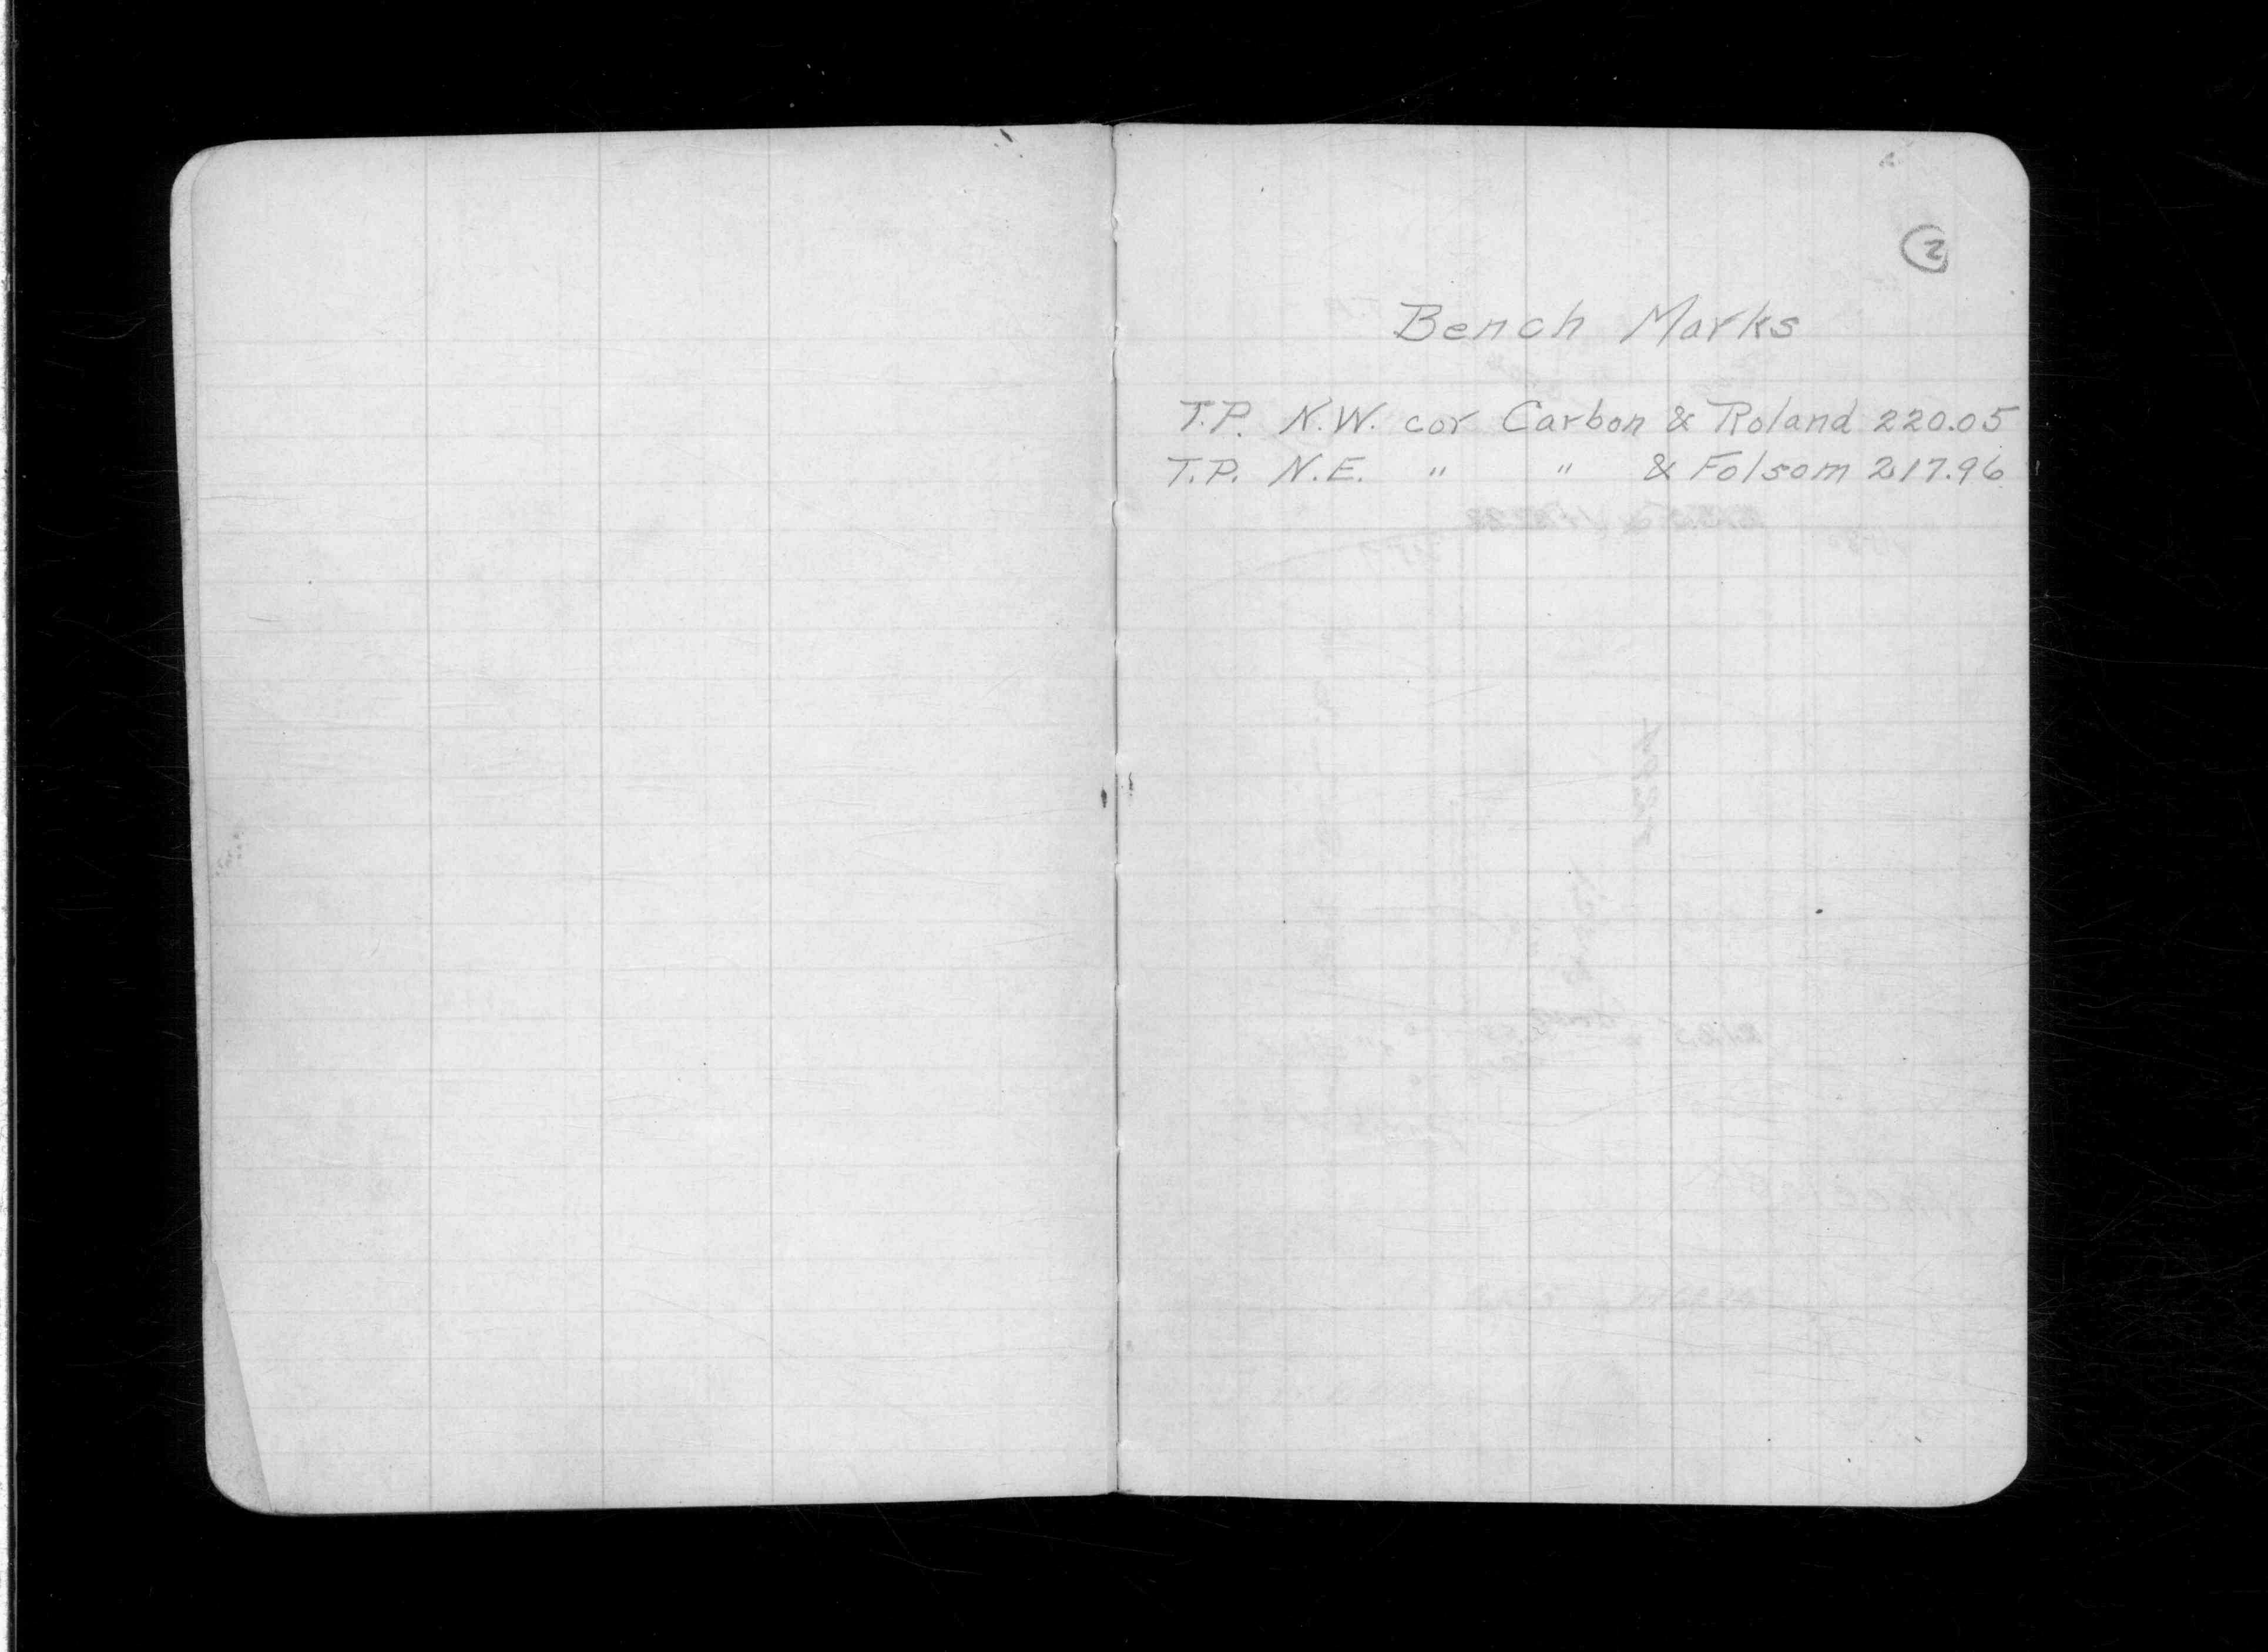 2
Bench Marks
T.P. N.W. cor Carbon & Roland 220.05
T.P. N.E. " " & Folsom 217.96